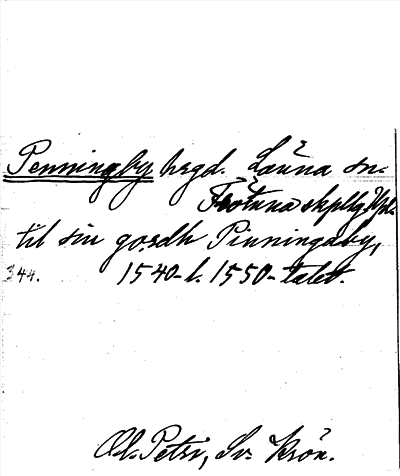 Penningby hrgd. Länna sn.
Frötuna skplg Upl.
til sin gordh Pinningaby,
344. 1540-t. 1550-talet.
Ol. Petri, Sv. Krön.